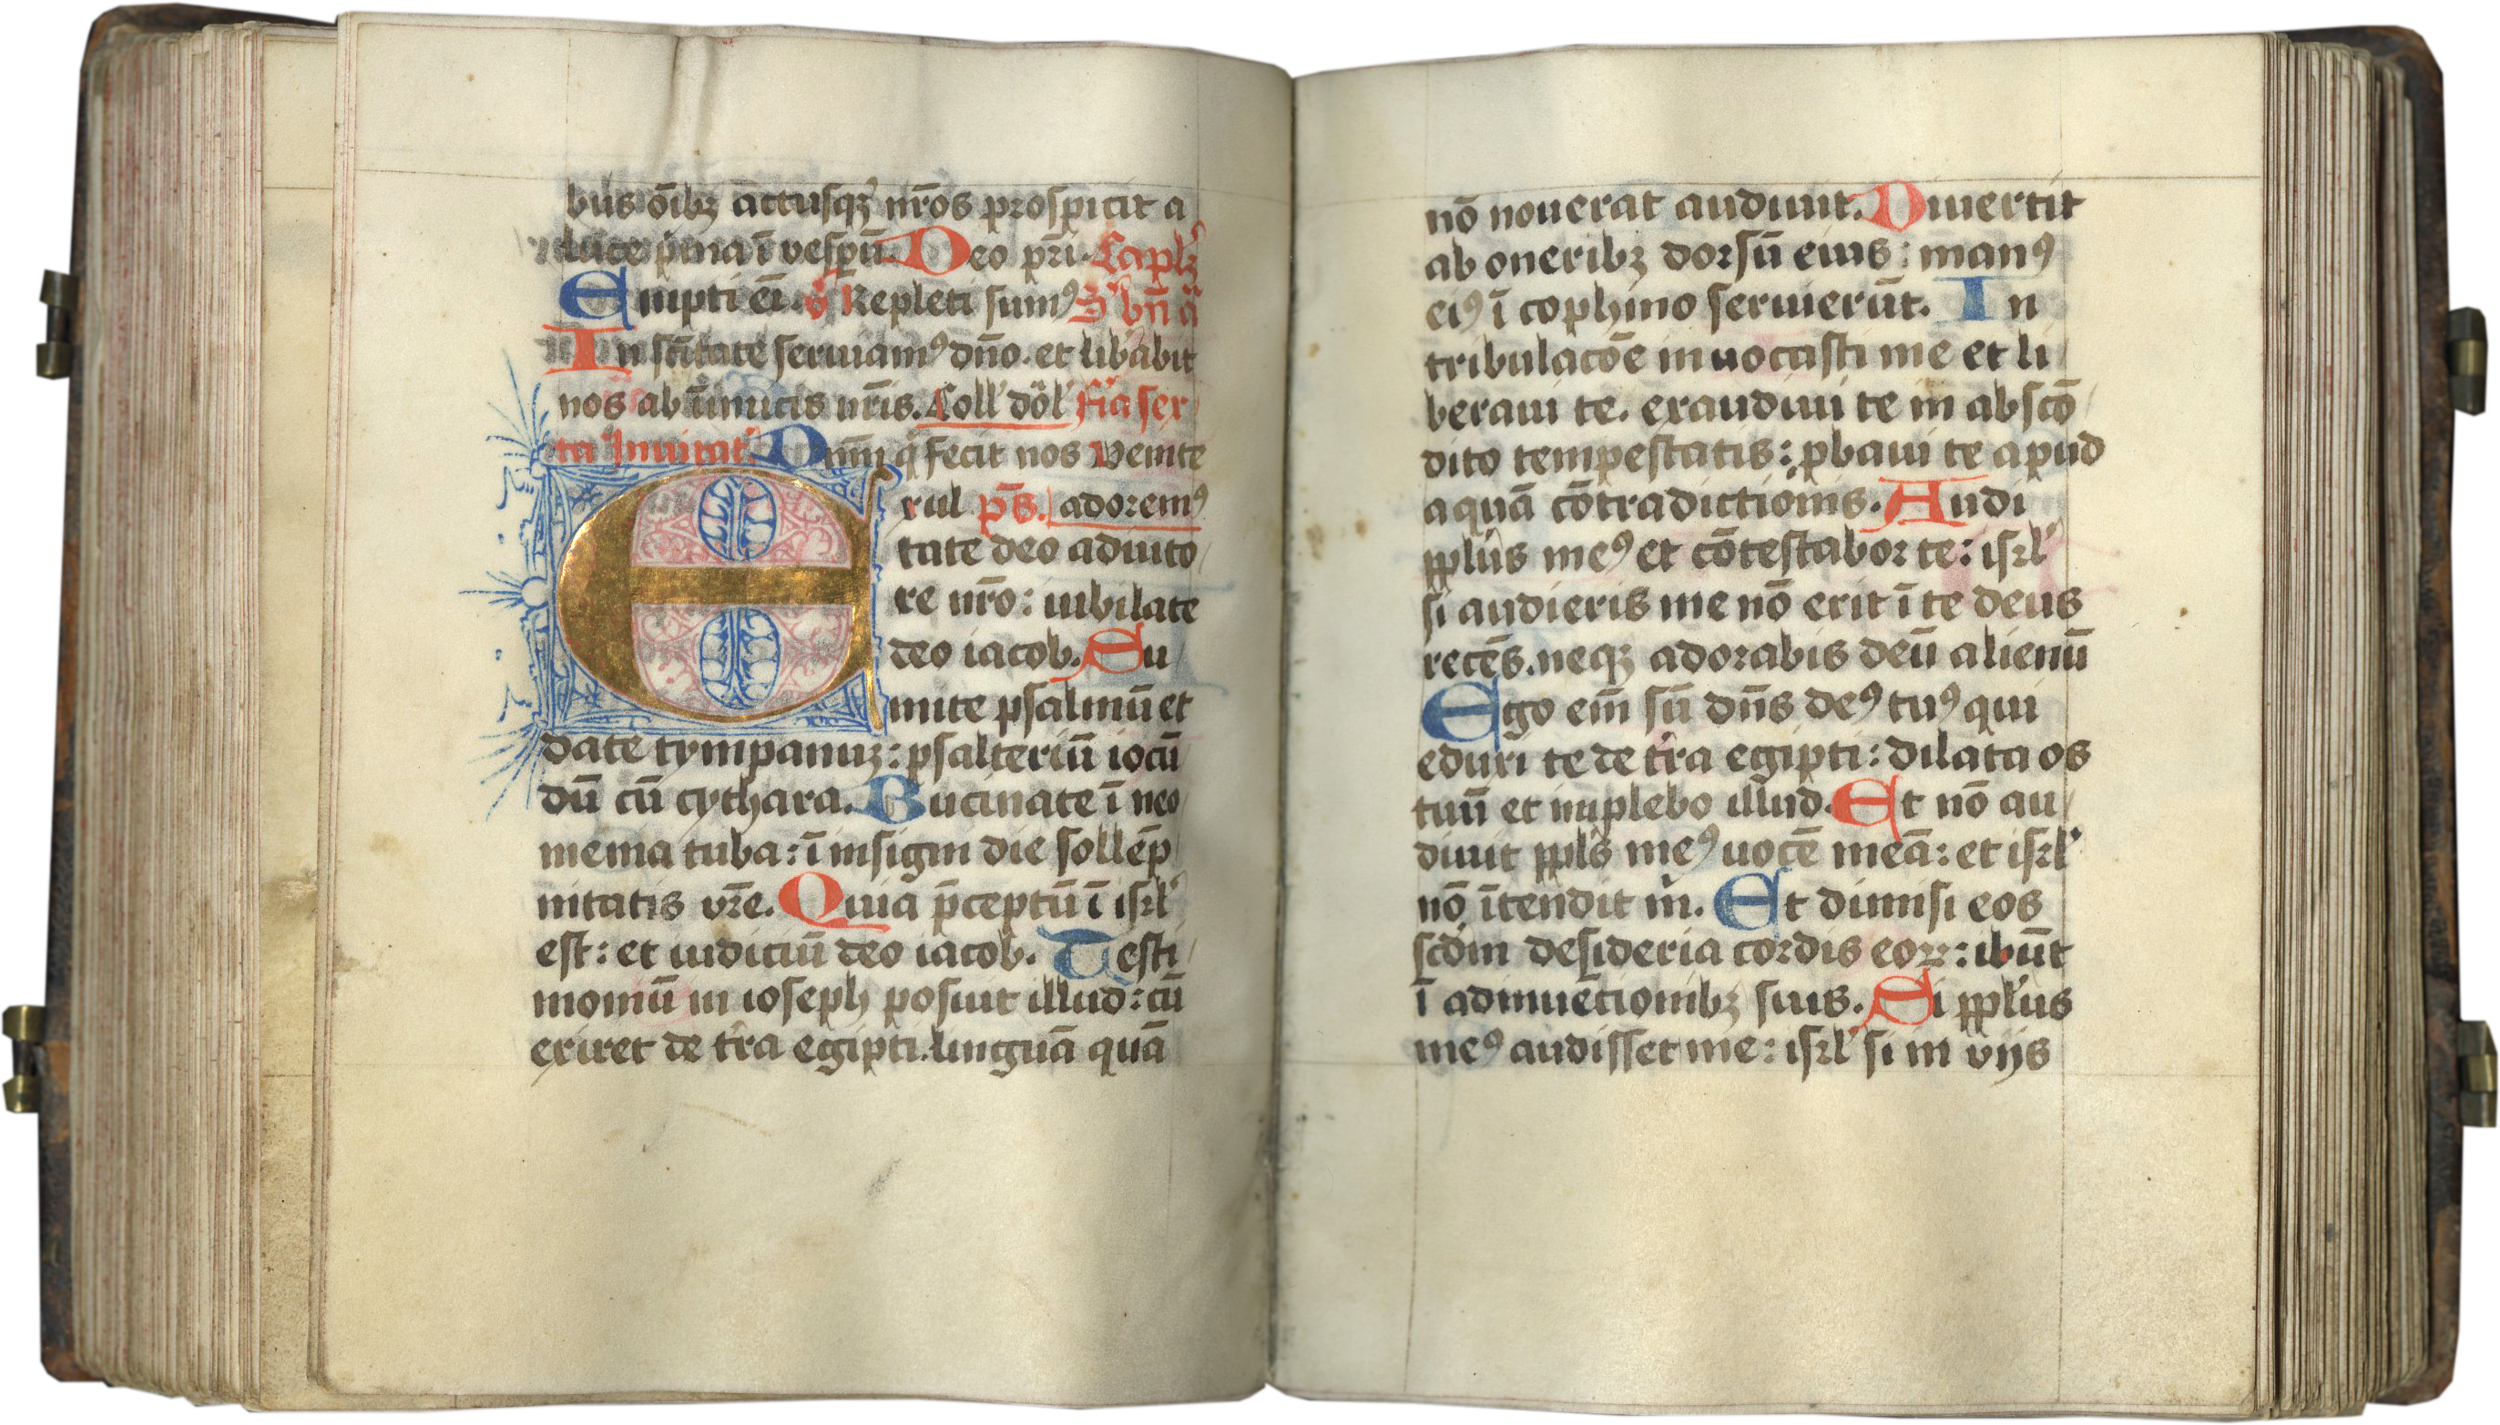 bus oı̄bꝫ actusqꝫ nr̄os prospicit a
luce p̄ma ī vesꝑū. Deo pr̄i. Capl̄ꝫ
Empti eī. v̾ Repleti sumꝰ S' bn̄
In sc̄itate seruiamꝰ dn̄o. et lib̾abit
nos ab īnimicis nr̄is. Coll' dōl' fr̄ia sex
ta Inuitat' Dnm̄ q̇ fecit nos venite
xul ps̄. adoremꝰ
Etate deo adiuto
re nr̄o: iubilate
deo iacob. Su
mite psalmū et
date tympanuꝫ: psalteriū iocū
dū cū cythara. Bucinate ī neo
menia tuba: ī insigni die sollēp
nitatis vr̄e. Quia p̄ceptū ī isrl'
est: et iudiciū deo iacob. Testi
moniū in ioseph posuit illud: cū
exiret de tr̄a egipti. linguā quā
nō nouerat audiuit. Diuertit
ab oneribꝫ dorsū eius: manꝰ
eiꝰ ī cophino seruierūt. In
tribulacōe inuocasti me et li
beraui te. exaudiui te in abscō
dito tempestatis: ꝓbaui te apud
aquā cōtradictiōnis. Audi
ppl'us meꝰ et cōtestabor te: isrl'
si audieris me nō erit ī te deus
recēs. neqꝫ adorabis deū alienū
Ego em̄ sū dn̄s deꝰ tuꝰ qui
eduxi te de tr̄a egipti: dilata os
tuū et implebo illud. Et nō au
diuit ppl's meꝰ uocē meā: et isrl'
nō ītendit ṁ. Et dimisi eos
scd̄m desideria cordis eoꝝ: ibūt
ī adinuēcionibꝫ suis. Si ppl'us
meꝰ audisset me: isrl' si in vijs